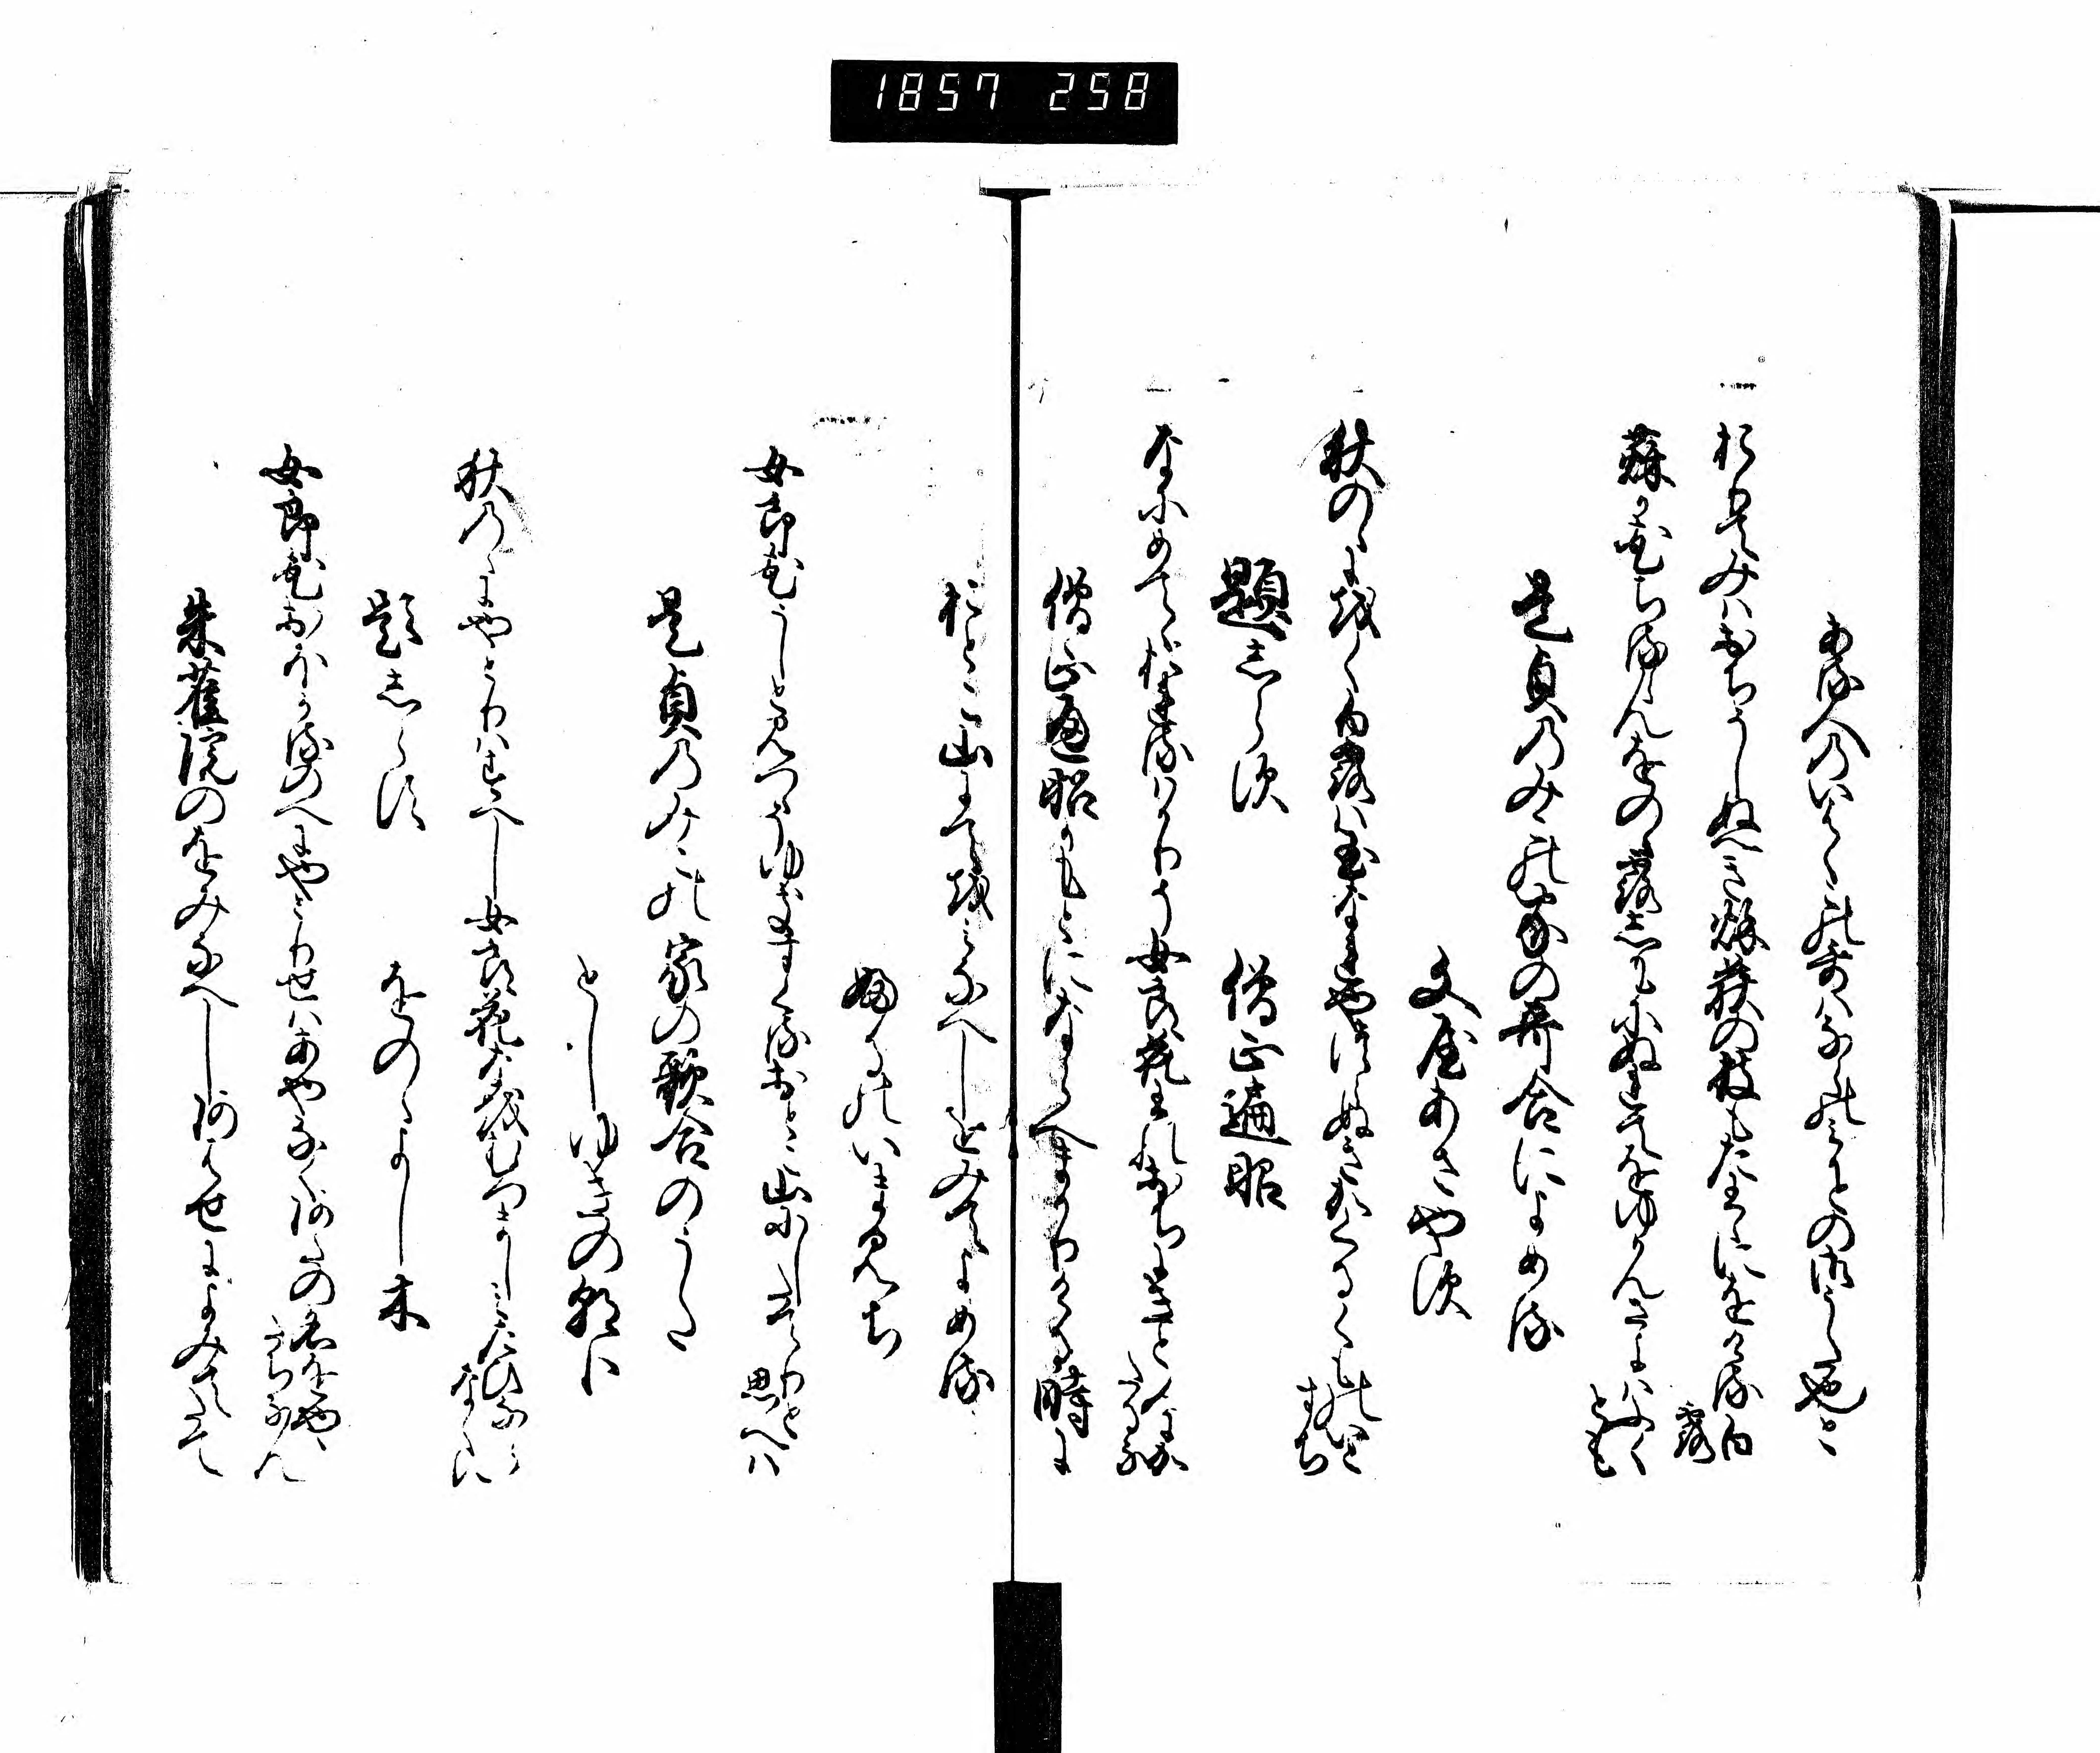 1857 258
ある人のいはくこの哥はならのみかとの御うた也と
おりてみはおちそしぬへき秌萩の枝もたわゝにをける白
露
萩か花ちるらんをのゝ露しもにぬれてをゆかんさよはふく
とも
是貞のみこの家の哥合によめる
文屋あさやす
秋のゝにをく白露は玉なれやつらぬきかくるくものいと
すち
題しらす 僧正遍昭
なにめてゝおれるはかりそ女良花われおちにきと人にか
たるな
僧正遍昭かもとにならへまかりける時に
おとこ山にてをみなへしをみてよめる
ふるのいまみち
女郎花うしと見つゝそゆきすくるおとこ山にしたてりと
思へは
是貞のみこの家の歌合のうた
としゆきの朝臣
秋のゝにやとりはすへし女良花なをむつましみたひなら
なくに
題しらす をのゝよし木
女郎花おほかるのへにやとりせはあやなくあたの名をや
たちなん
朱雀院のをみなへしあはせによみてたて